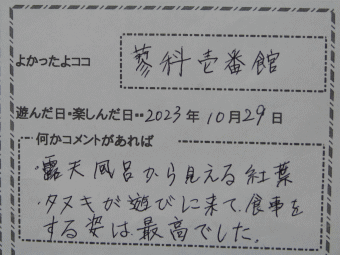 よかったよココ 蓼科壱番館
遊んだ日・楽しんだ日・・2023年10月29日
何かコメントがあれば
・露天風呂から見える紅葉
・タヌキが遊びに来て、食事を
する姿は最高でした。